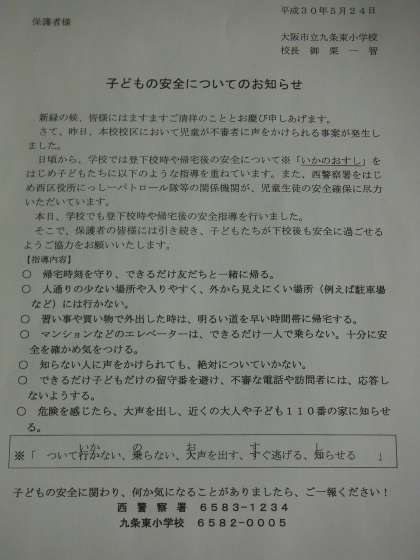 平成30年5月24日
保護者様
大阪市立九条東小学校
校長 御栗一智
子どもの安全についてのお知らせ
新緑の候、皆様にはますますご清祥のこととお慶び申しあげます。
さて、昨日、本校校区において児童が不審者に声をかけられる事案が発生し
ました。
日頃から、学校では登下校時や帰宅後の安全について※「いかのおすし」を
はじめ子どもたちに以下のような指導を重ねています。また、西警察署をはじ
め西区役所にっしーパトロール隊等の関係機関が、児童生徒の安全確保に尽力
いただいています。
本日、学校でも登下校時や帰宅後の安全指導を行いました。
そこで、保護者の皆様には引き続き、子どもたちが下校後も安全に過ごせる
ようご協力をお願いいたします。
【指導内容】
○ 帰宅時刻を守り、できるだけ友だちと一緒に帰る。
○ 人通りの少ない場所や入りやすく、外から見えにくい場所（例えば駐車場
など）には行かない。
○ 習い事や買い物で外出した時は、明るい道を早い時間帯に帰宅する。
○ マンションなどのエレベーターは、できるだけ一人で乗らない。十分に安
全を確かめ気をつける。
○ 知らない人に声をかけられても、絶対についていかない。
○ できるだけ子どもだけの留守番を避け、不審な電話や訪問者には、応答し
ないようする。
○ 危険を感じたら、大声を出し、近くの大人や子ども110番の家に知らせ
る。
いか の お す し
※「 ついて行かない、乗らない、大声を出す、すぐ逃げる、知らせる 」
子どもの安全に関わり、何か気になることがありましたら、ご一報ください！
西警察署 6583-1234
九条東小学校 6582-0005